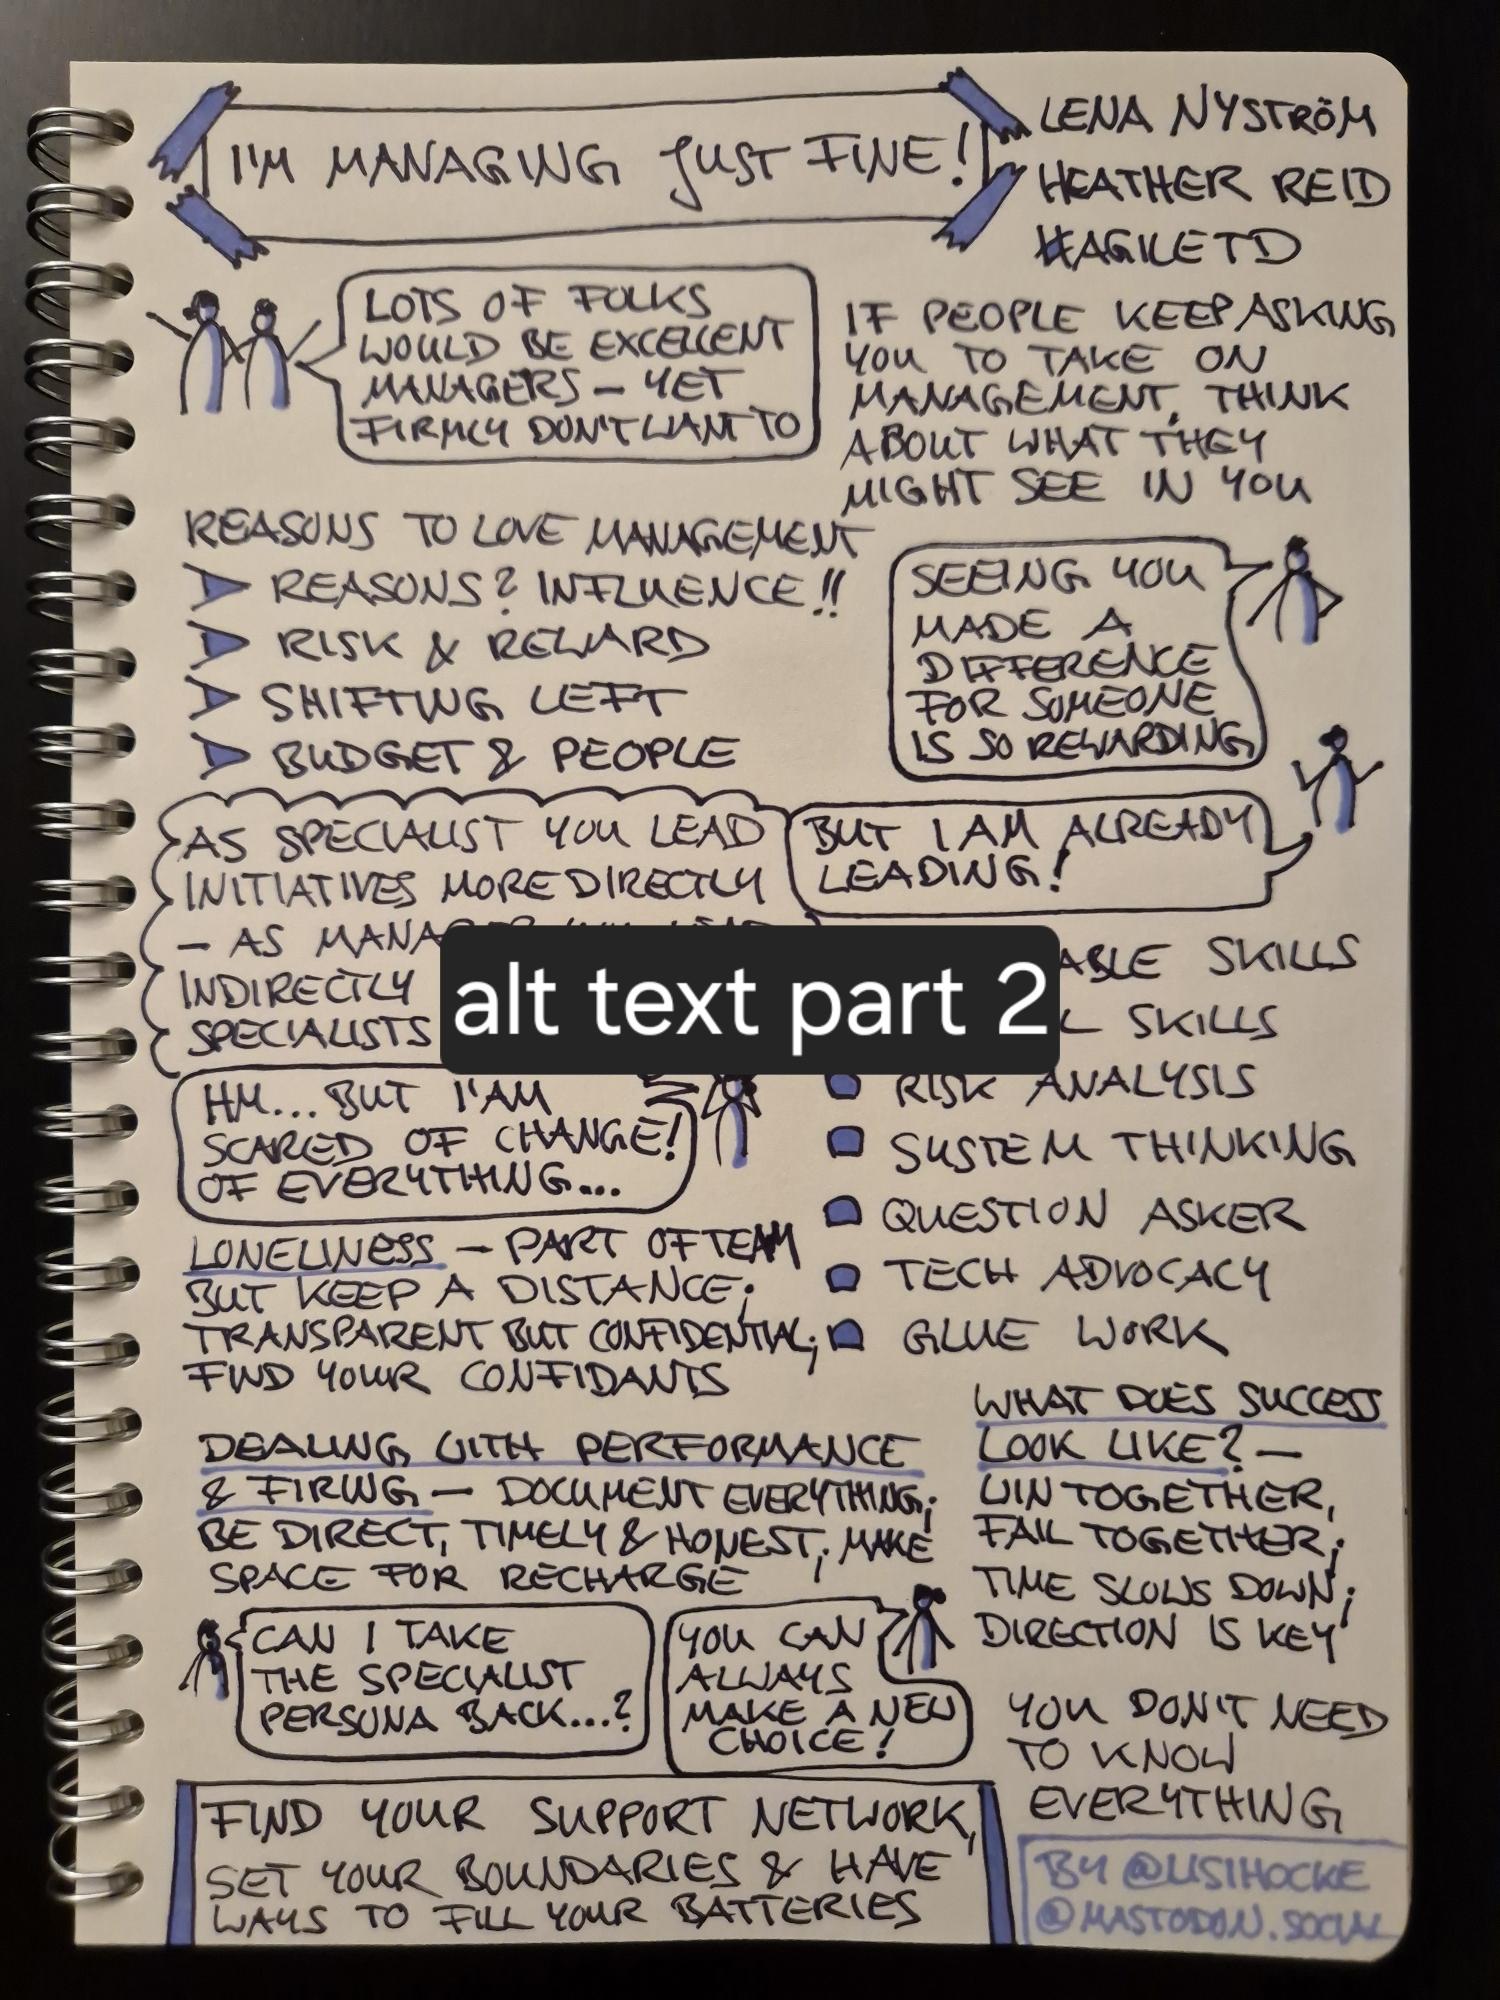 I'M MANAGING JUST FINE!
LENA NYSTRÖM
HEATHER REID
#AGILETD
LOTS OF FOLKS
WOULD BE EXCELLENT
MANAGERS – YET
FIRMLY DON'T WANT TO
IF PEOPLE KEEP ASKING
YOU TO TAKE ON
MANAGEMENT, THINK
ABOUT WHAT THEY
MIGHT SEE IN YOU
REASONS TO LOVE MANAGEMENT
REASONS? INFLUENCE!!
RISK & REWARD
SHIFTING LEFT
BUDGET & PEOPLE
SEEING YOU
MADE A
DIFFERENCE
FOR SOMEONE
IS SO REWARDING
AS SPECIALIST YOU LEAD
INITIATIVES MORE DIRECTLY
– AS
INDIRECTLY
SPECIALISTS
BUT I AM ALREADY
LEADING!
alt text part 2
SKILLS
SKILLS
RISK ANALYSIS
SYSTEM THINKING
QUESTION ASKER
TECH ADVOCACY
GLUE WORK
HM... BUT I'AM
SCARED OF CHANGE!
OF EVERYTHING...
LONELINESS – PART OF TEAM
BUT KEEP A DISTANCE;
TRANSPARENT BUT CONFIDENTIAL;
FIND YOUR CONFIDANTS
DEALING WITH PERFORMANCE
& FIRING – DOCUMENT EVERYTHING;
BE DIRECT, TIMELY & HONEST; MAKE
SPACE FOR RECHARGE
WHAT DOES SUCCESS
LOOK LIKE? –
WIN TOGETHER,
FAIL TOGETHER;
TIME SLOWS DOWN;
DIRECTION IS KEY
CAN I TAKE
THE SPECIALIST
PERSONA BACK...?
YOU CAN
ALWAYS
MAKE A NEW
CHOICE!
YOU DON'T NEED
TO KNOW
EVERYTHING
FIND YOUR SUPPORT NETWORK,
SET YOUR BOUNDARIES & HAVE
WAYS TO FILL YOUR BATTERIES
BY @LISIHOCKE
@MASTODON.SOCIAL